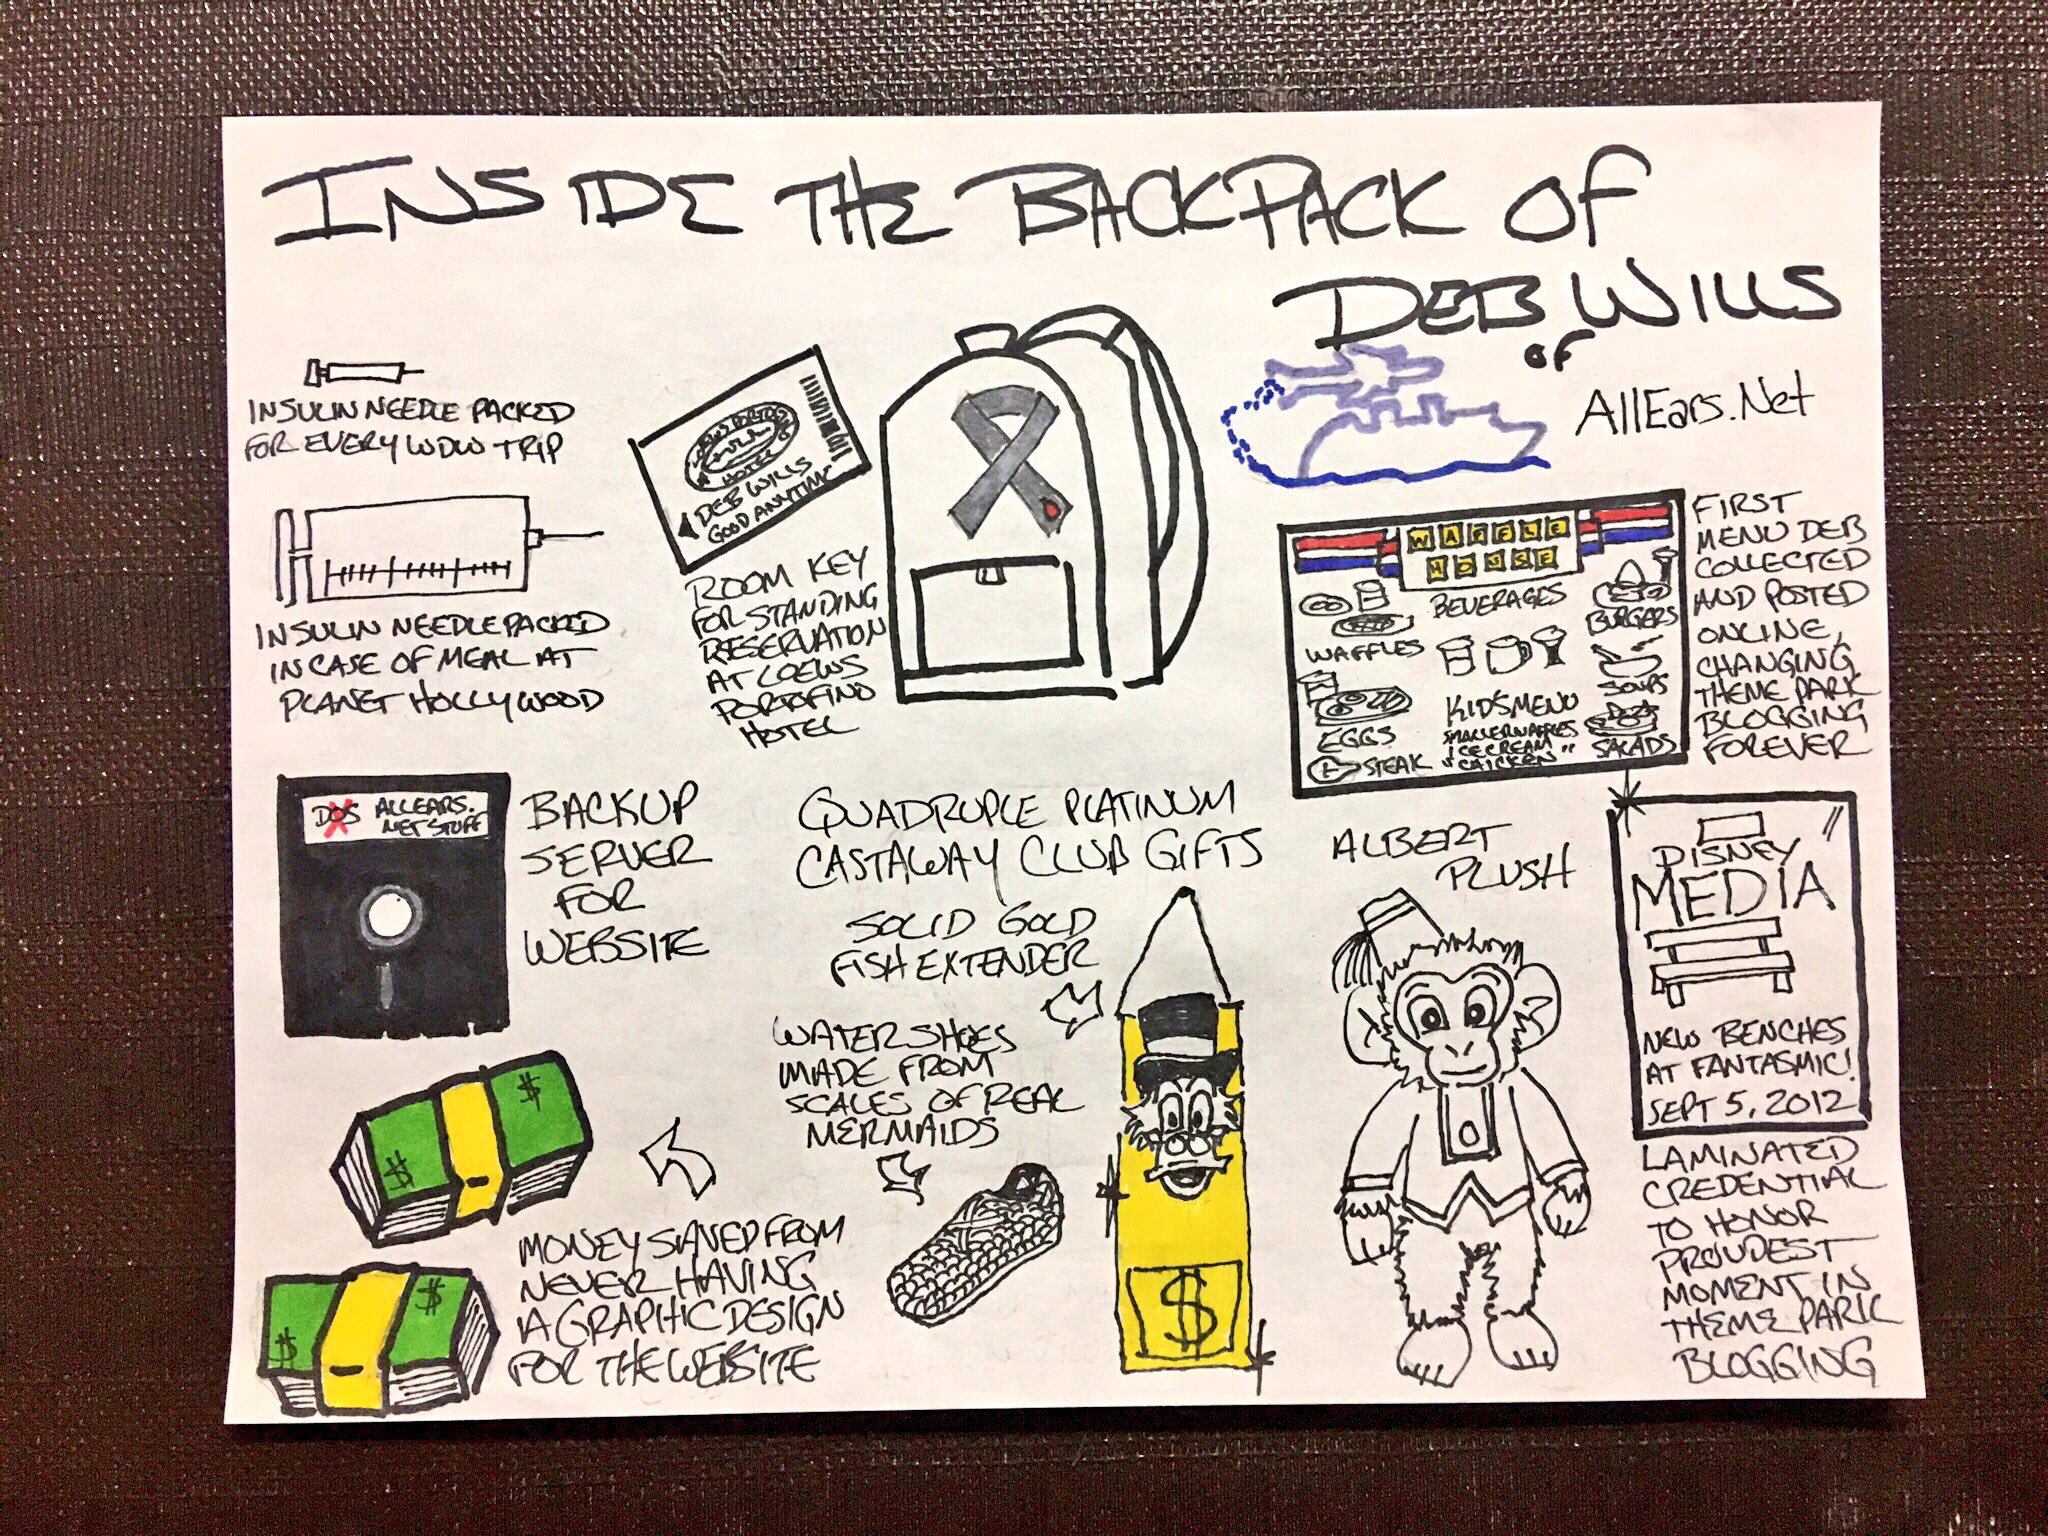 INSIDE THE BACKPACK OF
DEB WILLS
OF
AllEars.Net
INSULIN NEEDLE PACKED
FOR EVERY WDW TRIP
INSULIN NEEDLE PACKED
IN CASE OF MEAL AT
PLANET HOLLYWOOD
HOTEL
DEB WILLS
GOOD ANYTIME
ROOM KEY
FOR STANDING
RESERVATION
AT LOEWS
PORTOFINO
HOTEL
WAFFLE
HOUSE
BEVERAGES
BURGERS
WAFFLES
SOUPS
KIDS MENU
SMALLER WAFFLES
ICE CREAM
"CHICKEN"
EGGS
STEAK
SALADS
FIRST
MENU DEB
COLLECTED
AND POSTED
ONLINE,
CHANGING
THEME PARK
BLOGGING
FOREVER
DOS ALLEARS.
NET STUFF
BACKUP
SERVER
FOR
WEBSITE
QUADRUPLE PLATINUM
CASTAWAY CLUB GIFTS
SOLID GOLD
FISH EXTENDER
WATER SHOES
MADE FROM
SCALES OF REAL
MERMAIDS
$
ALBERT
PLUSH
DISNEY
MEDIA
NEW BENCHES
AT FANTASMIC!
SEPT 5, 2012
LAMINATED
CREDENTIAL
TO HONOR
PROUDEST
MOMENT IN
THEME PARK
BLOGGING
$
$
$
$
MONEY SAVED FROM
NEVER HAVING
A GRAPHIC DESIGN
FOR THE WEBSITE